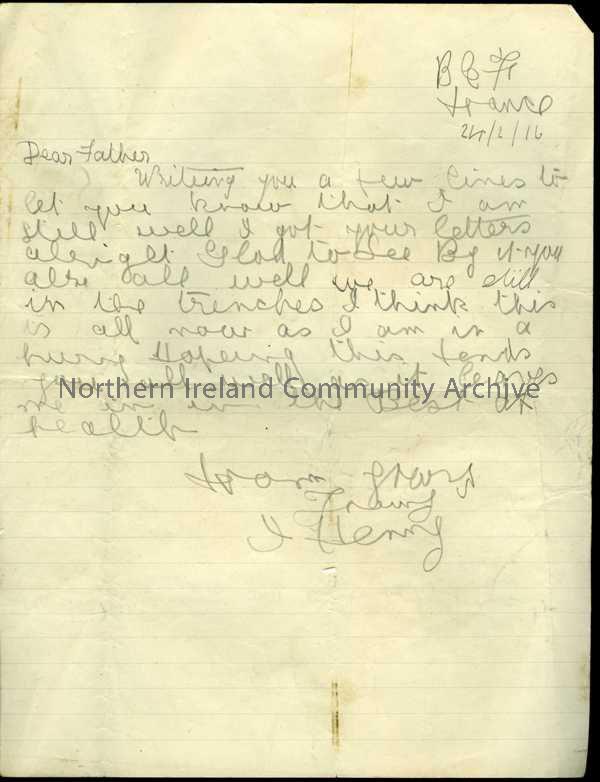 B E F
France
24/2/16
Dear Father
Writing you a few lines to
let you know that I am
still well I got your letters
alright Glad to see By it you
are all well we are still
in the trenches I think this
is all now as I am in a
hurry Hopeing this fends
you all well as it leaves
Northern Ireland Community Archive
me in in the Best of
health
from yours
Truly
J Henry